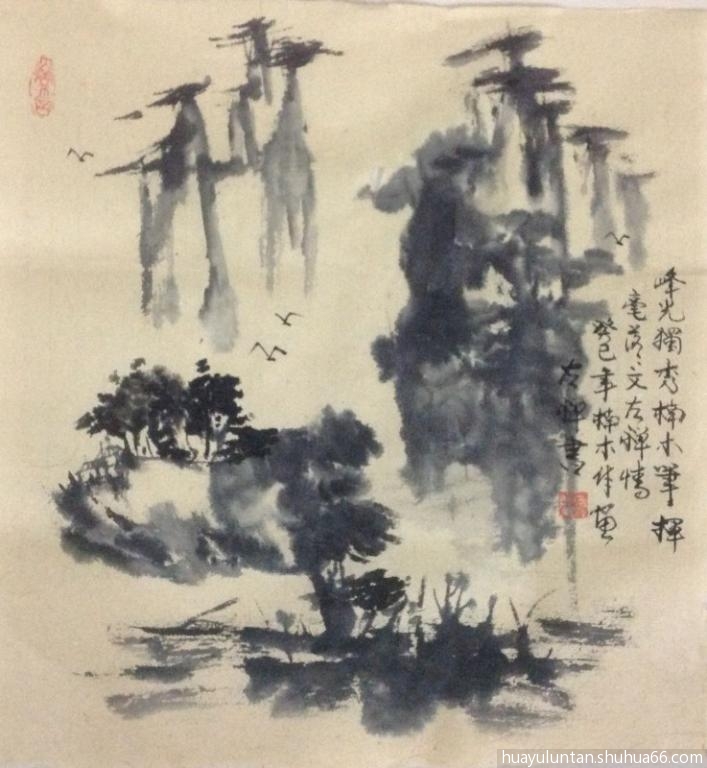 峰光獨秀楠木筆揮
毫落文左禪情
癸巳年楠木林畫
左禪書
huayuluntan.shuhua66.com